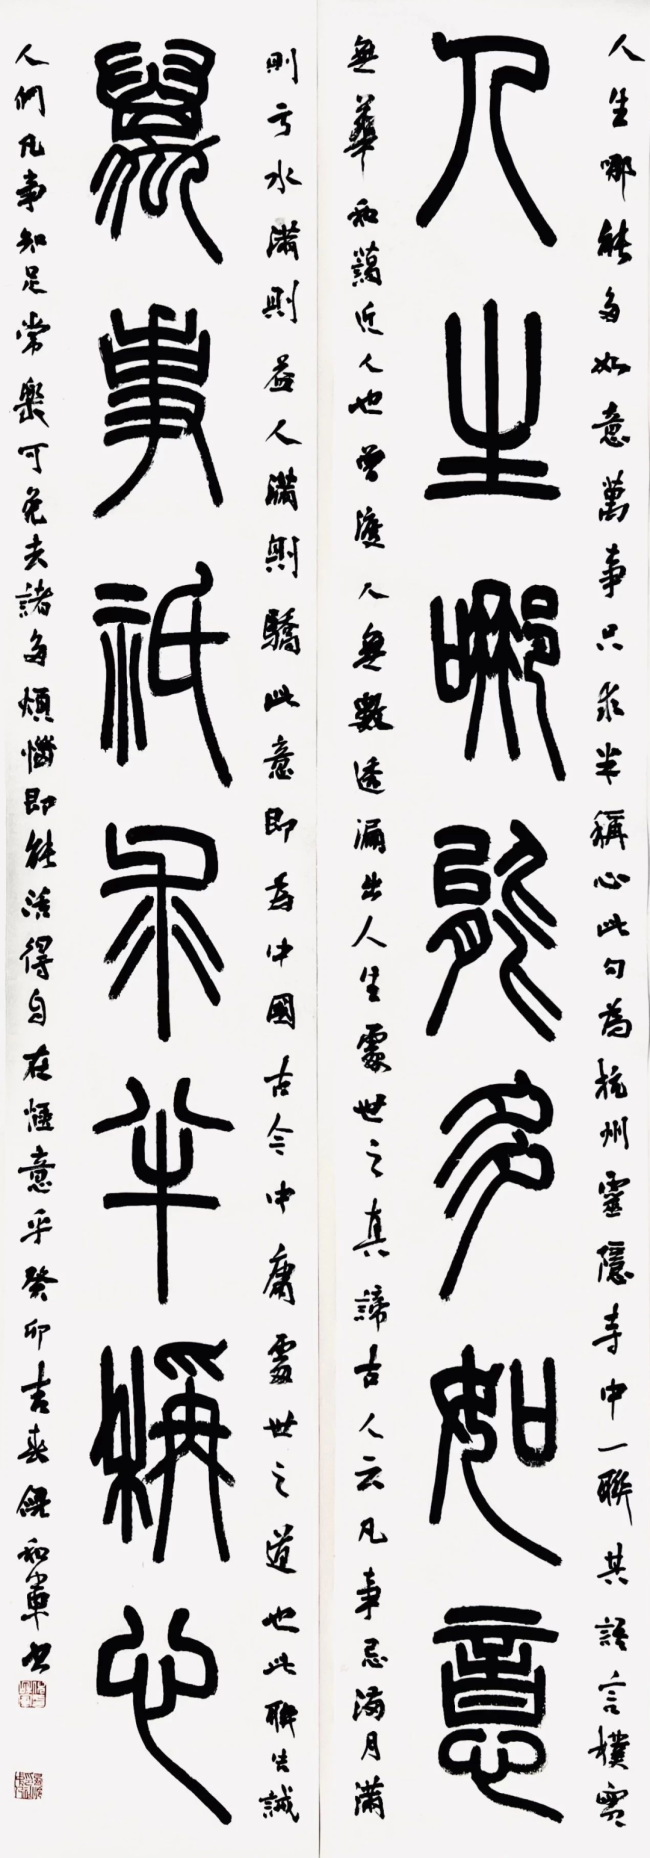 人生哪能多如意萬事只求半稱心此句爲杭州靈隱寺中一聯其語言樸實
人生哪能多如意
無華和藹近人也曾渡人無數透漏出人生處世之真諦古人云凡事忌滿月滿
則虧水滿則益人滿則驕此意即爲中國古今中庸處世之道也此聯告誡
萬事祇求半稱心
人們凡事知足常樂可免去諸多煩惱即能活得自在愜意乎癸卯吉春 和軍書